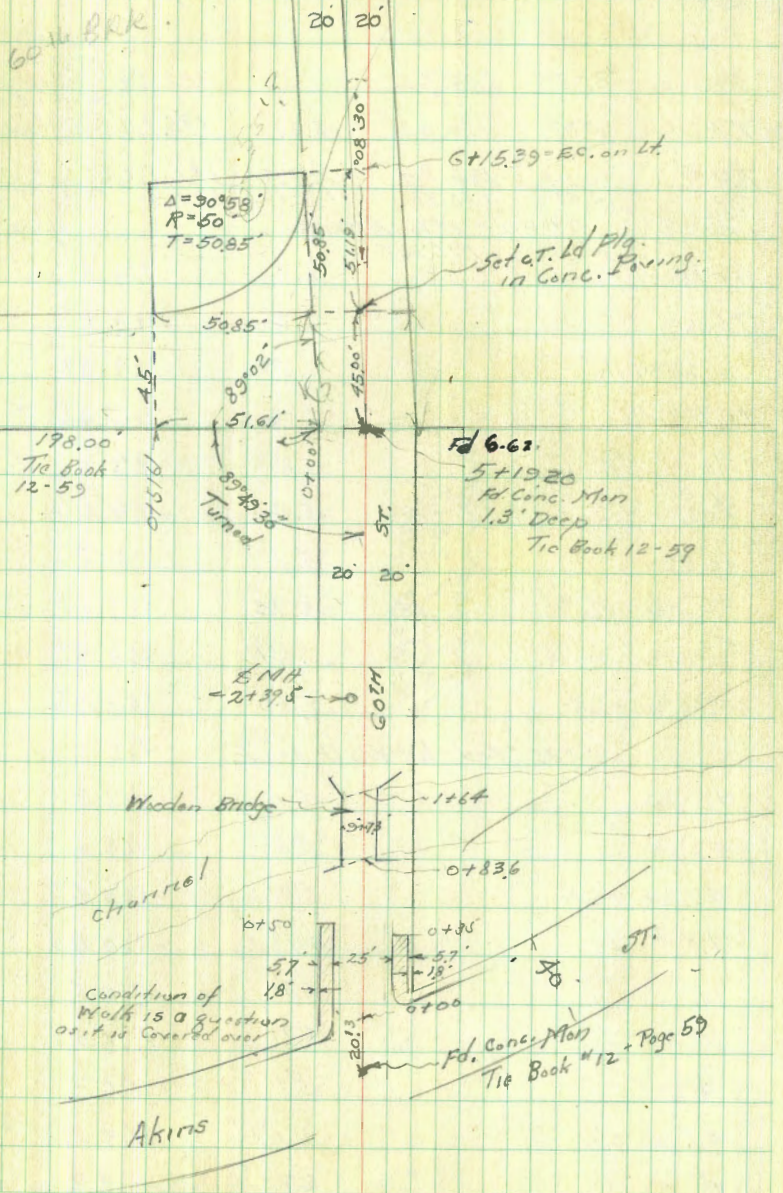 20' 20'
60th BRK.
1°08'30"
6+15.39=E.C. on Lt.
Δ=90°58'
R=50'
T=50.85'
50.85'
51.19'
Set a T. Ld Plg.
in Conc. Paving.
50.85'
45'
89°02'
45.00'
51.61'
198.00'
Tie Book
12-59
0+51.61
0+00
89°49'30"
Turned
Fd 6-62
5+19.20
Fd. Conc. Mon
1.3' Deep
Tie Book 12-59
ST.
20' 20'
MH
2+39.5
60TH
Wooden Bridge
1+64
0+83.6
Channel
0+50
0+35
5.7'
25'
5.7'
1.8'
1.8'
40
ST.
Condition of
Walk is a question
as it is Covered over
0+00
20.13
Fd. Conc. Mon
Tie Book #12 - Page 59
Akins